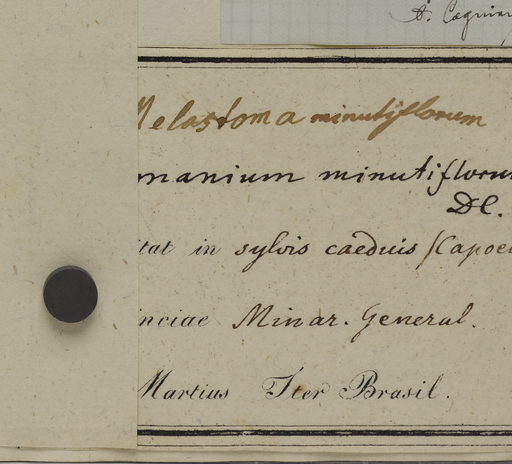 A. Cogniau
Melastoma minutiflorum
manium minutiflorum
DC.
itat in sylvis caeduis (Capoe
inciae Minar. General.
Martius Iter Brasil.